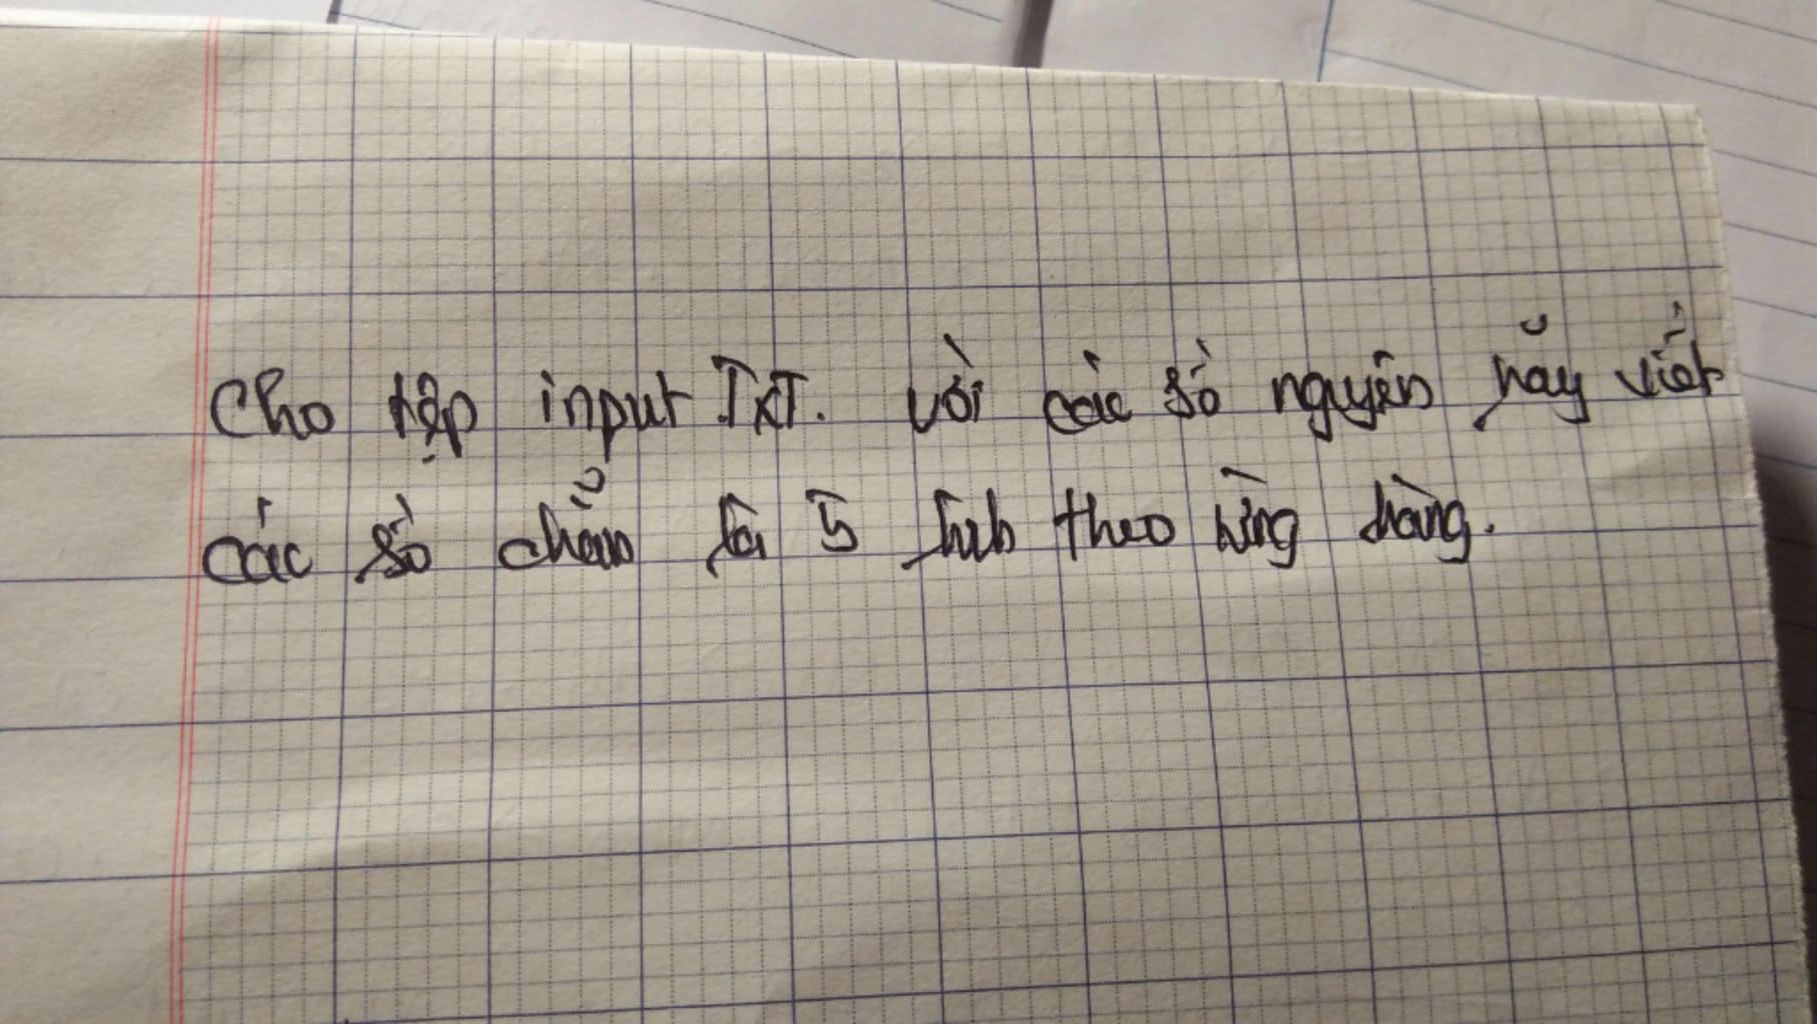 Cho tệp input.TXT. với các số nguyên hãy viết
các số chẵn là 5 theo từng hàng.